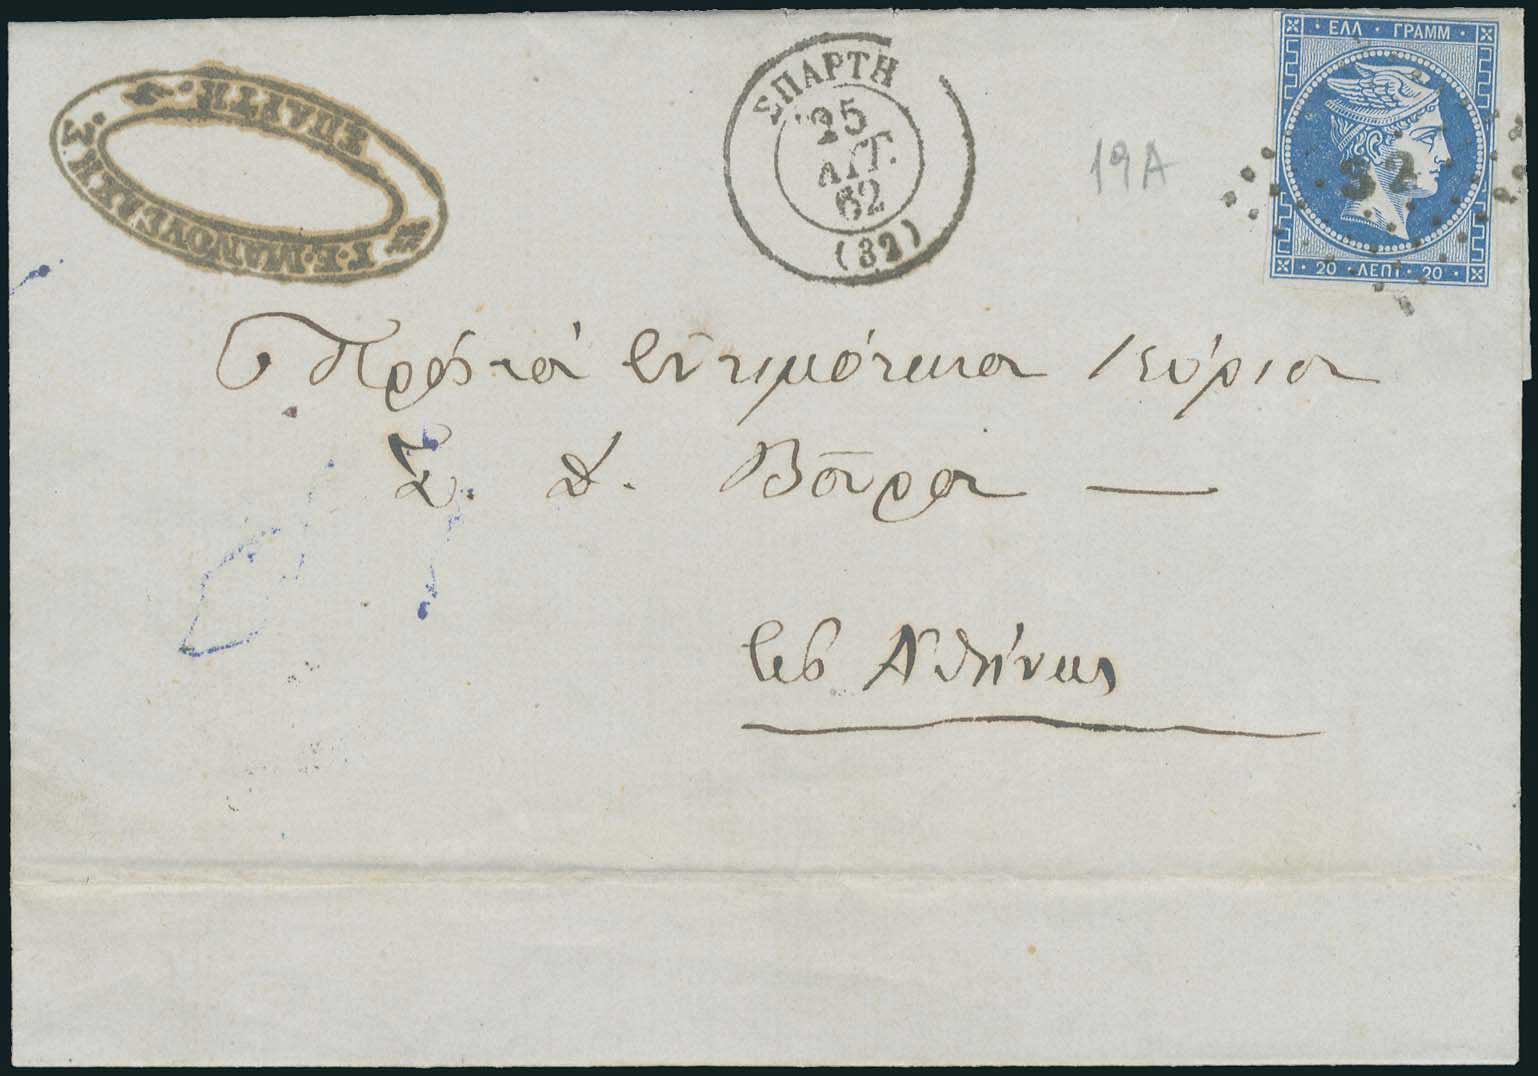 Γ. Ε. ΜΑΝΟΥΣΑΚΗΣ.
ΣΠΑΡΤΗ.
ΣΠΑΡΤΗ
25
ΑΥΓ.
62
(32)
19A
ΕΛΛ · ΓΡΑΜΜ
32
20 · ΛΕΠΤ · 20
Πρὸς τὸν Ἐντιμότατον Κύριον
Σ. Δ. Βοῦρον —
εἰς Ἀθήνας